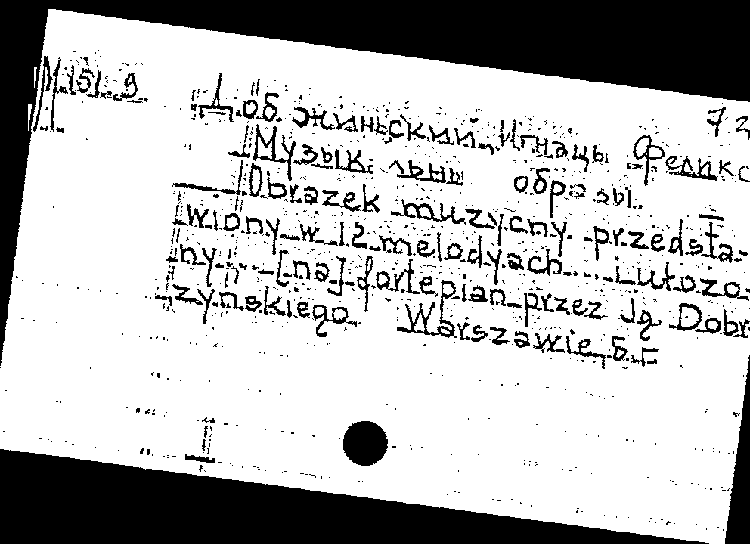 М 151 9
72
Добжиньский, Игнацы Феликс
Музык. льны образы.
Obrazek muzyczny przedsta-
wiony w 12 melodyach.... i ułozo-
ny... [na] fortepian przez Ig. Dobr
zyńskiego Warszawie, Б.г